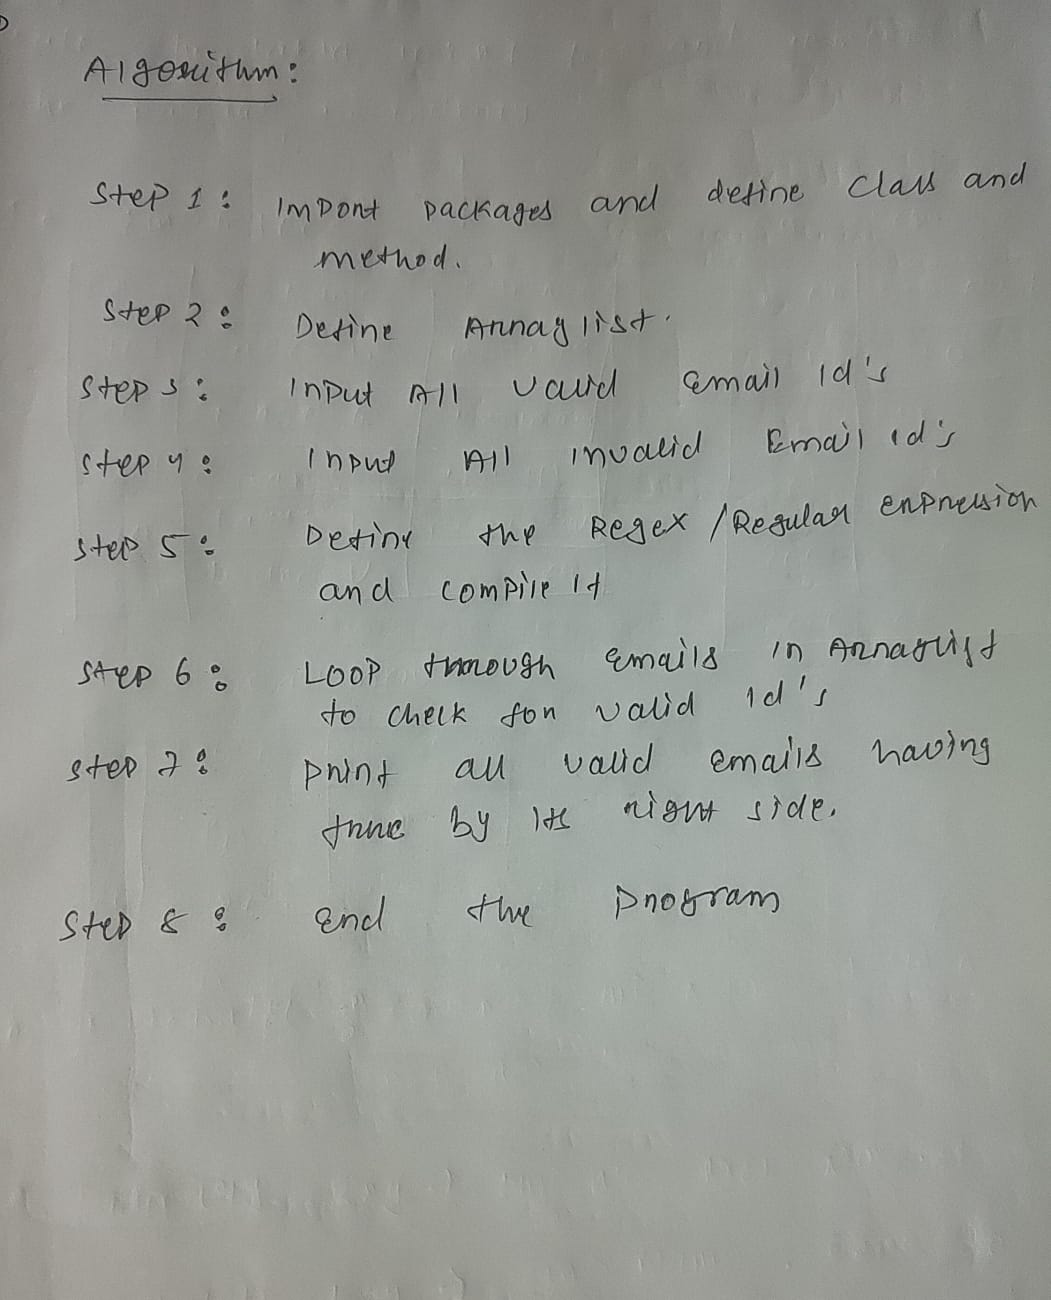 Algorithm:
Step 1: Import packages and define class and
method.
Step 2: Define Arraylist.
Step 3: Input All valid email id's
Step 4: Input All invalid Email id's
Step 5: Define the Regex / Regular expression
and compile it
Step 6: Loop through emails in Arraylist
to check for valid id's
Step 7: print all valid emails having
true by its right side.
Step 8: end the program